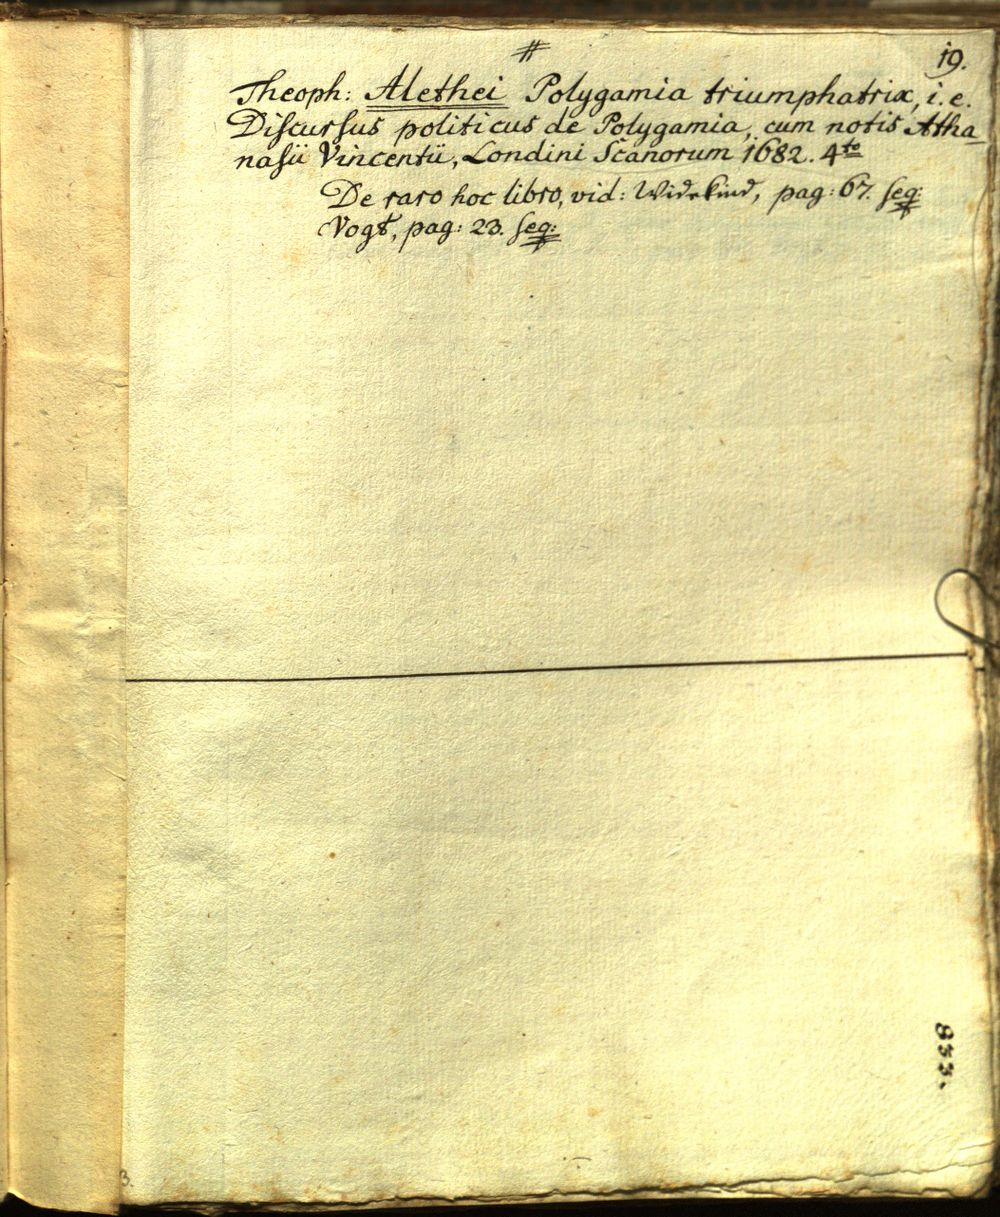 #
19.
Theoph: Alethei Polygamia triumphatrix, i. e.
Discursus politicus de Polygamia, cum notis Atha
nasii Vincentii, Londini Scanorum 1682. 4to
De raro hoc libro, vid: Widekind, pag: 67. seq:
Vogt, pag: 23. seq:
833.
3.